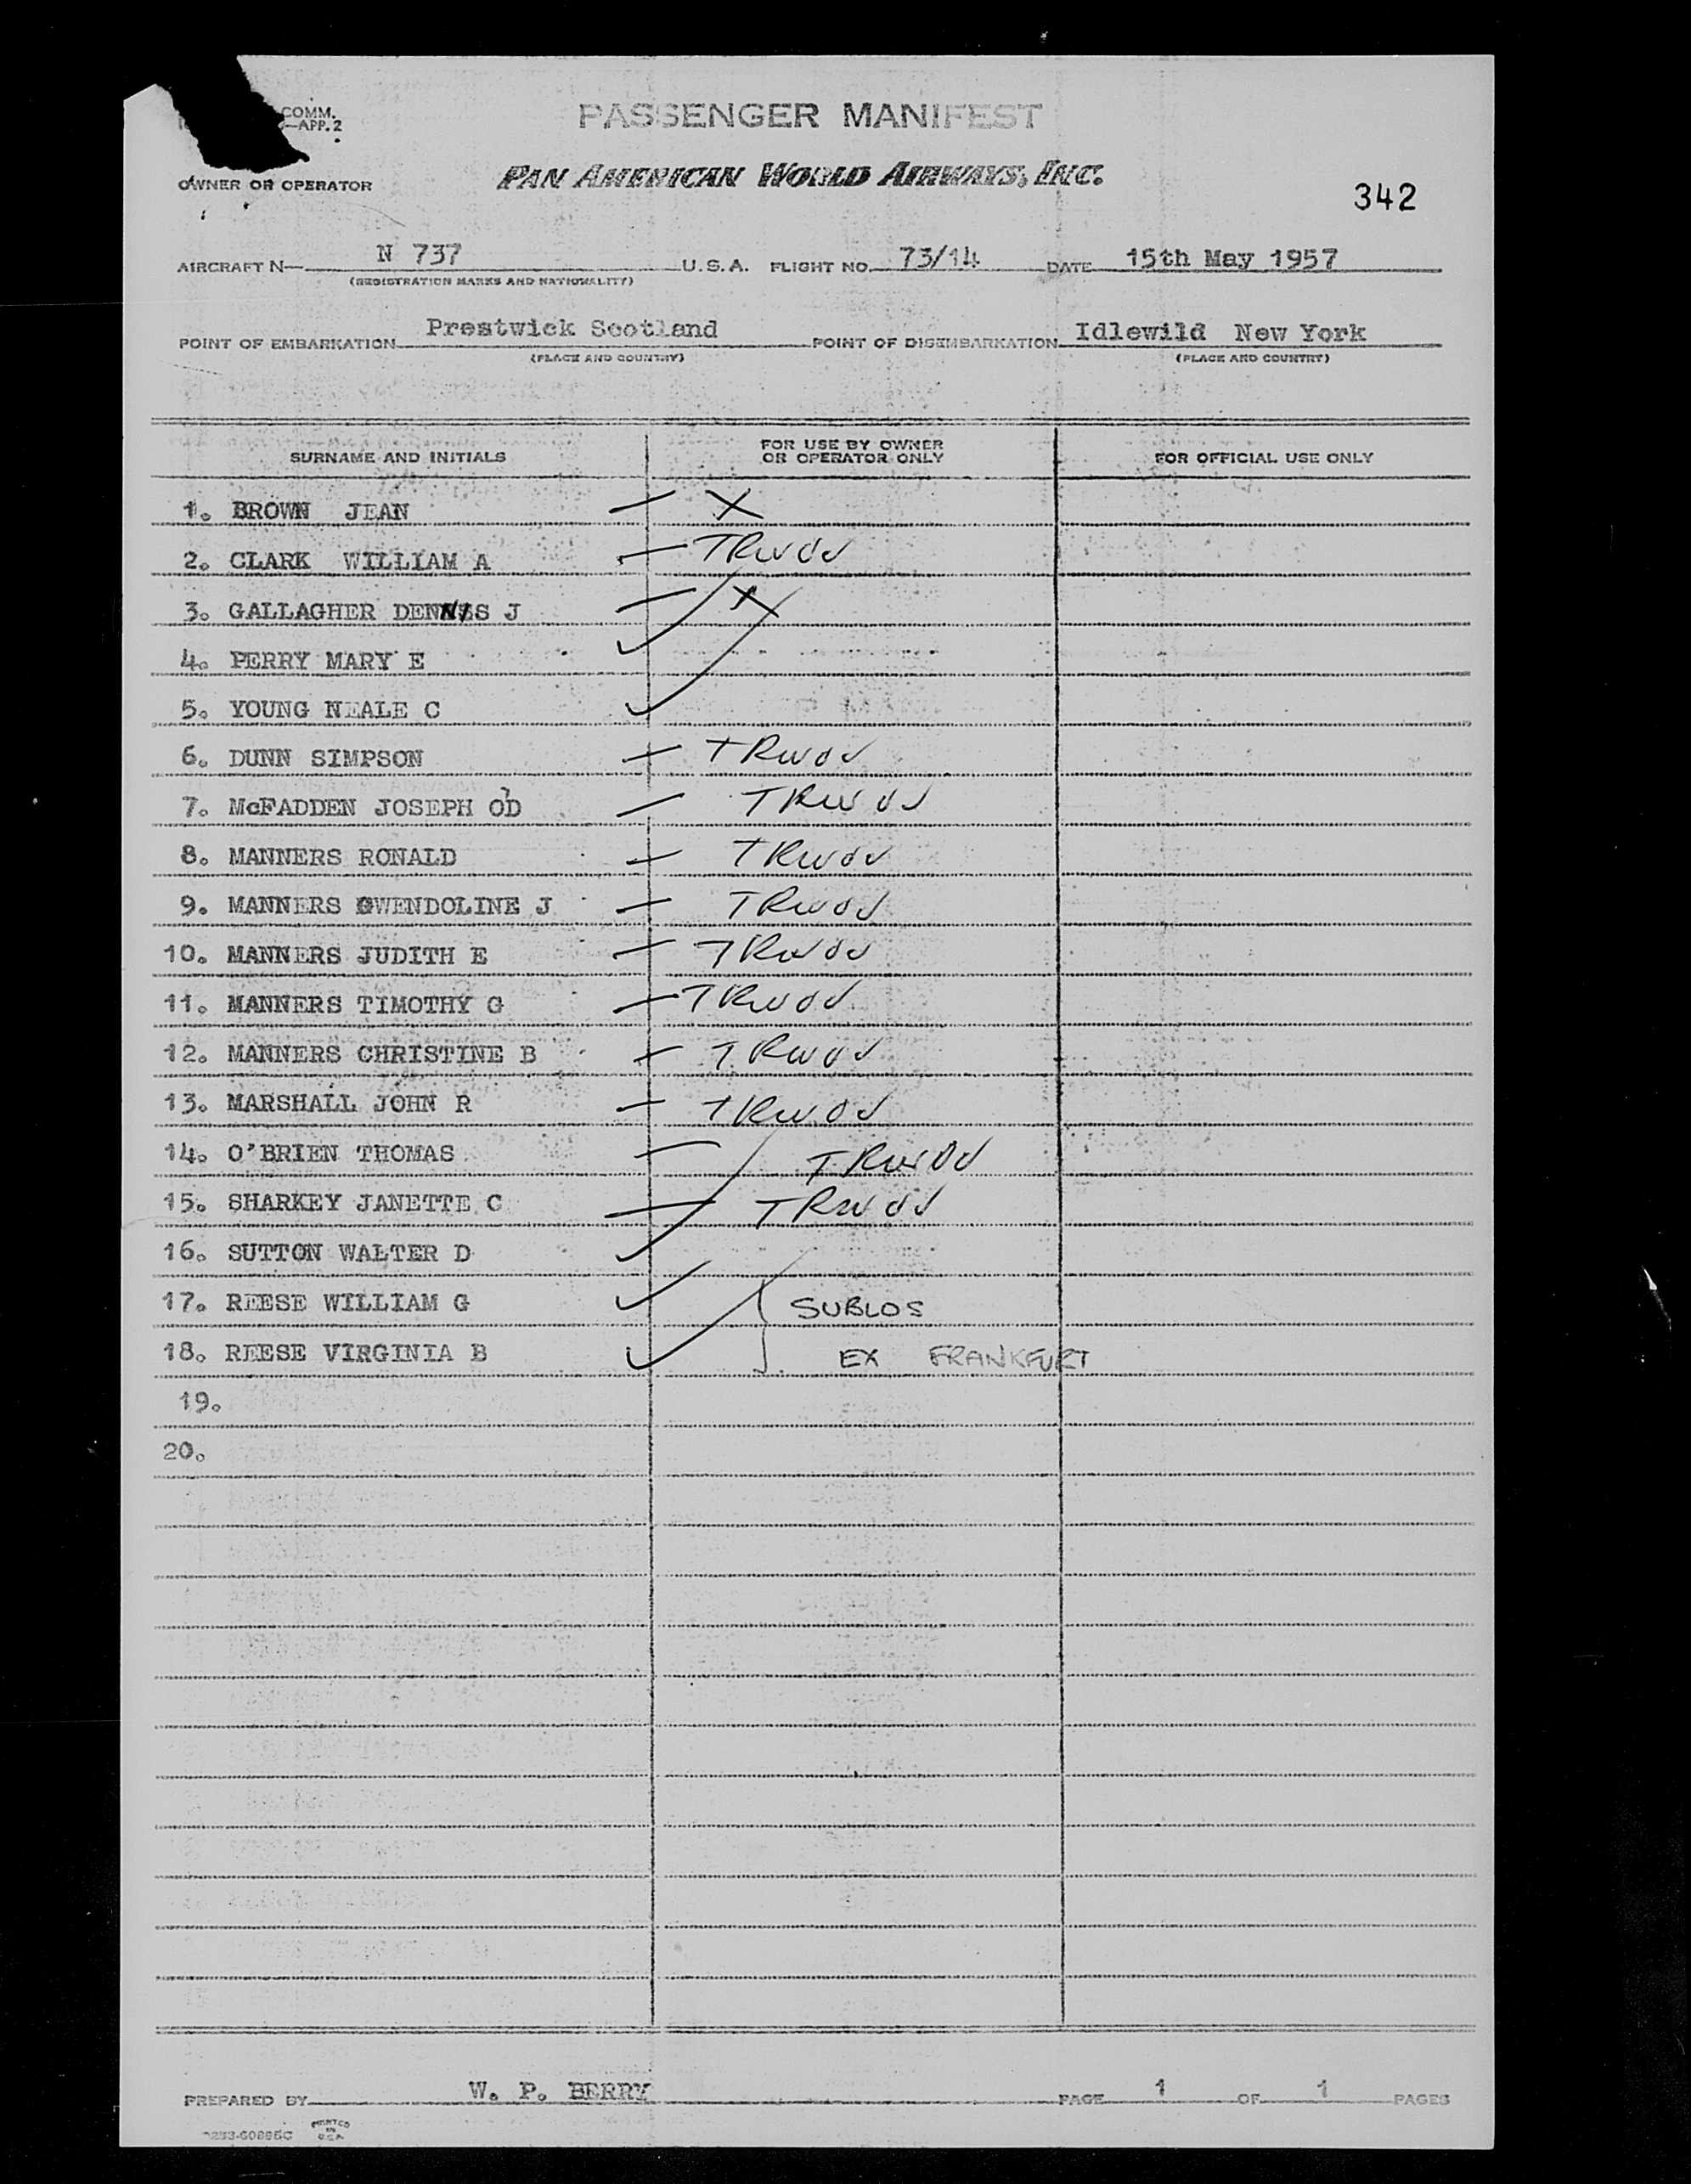 COMM.
—APP. 2
PASSENGER MANIFEST
OWNER OR OPERATOR
PAN AMERICAN WORLD AIRWAYS, INC.
342
AIRCRAFT N— N 737 U.S.A. FLIGHT NO. 73/14 DATE 15th May 1957
(REGISTRATION MARKS AND NATIONALITY)
POINT OF EMBARKATION Prestwick Scotland POINT OF DISEMBARKATION Idlewild New York
(PLACE AND COUNTRY) (PLACE AND COUNTRY)
SURNAME AND INITIALS FOR USE BY OWNER OR OPERATOR ONLY FOR OFFICIAL USE ONLY
1. BROWN JEAN X
2. CLARK WILLIAM A
3. GALLAGHER DENNIS J X
4. PERRY MARY E
5. YOUNG NEALE C
6. DUNN SIMPSON
7. McFADDEN JOSEPH O'D
8. MANNERS RONALD
9. MANNERS GWENDOLINE J
10. MANNERS JUDITH E
11. MANNERS TIMOTHY G
12. MANNERS CHRISTINE B
13. MARSHALL JOHN R
14. O'BRIEN THOMAS
15. SHARKEY JANETTE C
16. SUTTON WALTER D
17. REESE WILLIAM G SUBLOS
18. REESE VIRGINIA B EX FRANKFURT
19.
20.
PREPARED BY W. P. BERRY PAGE 1 OF 1 PAGES
PRINTED
IN
U.S.A.